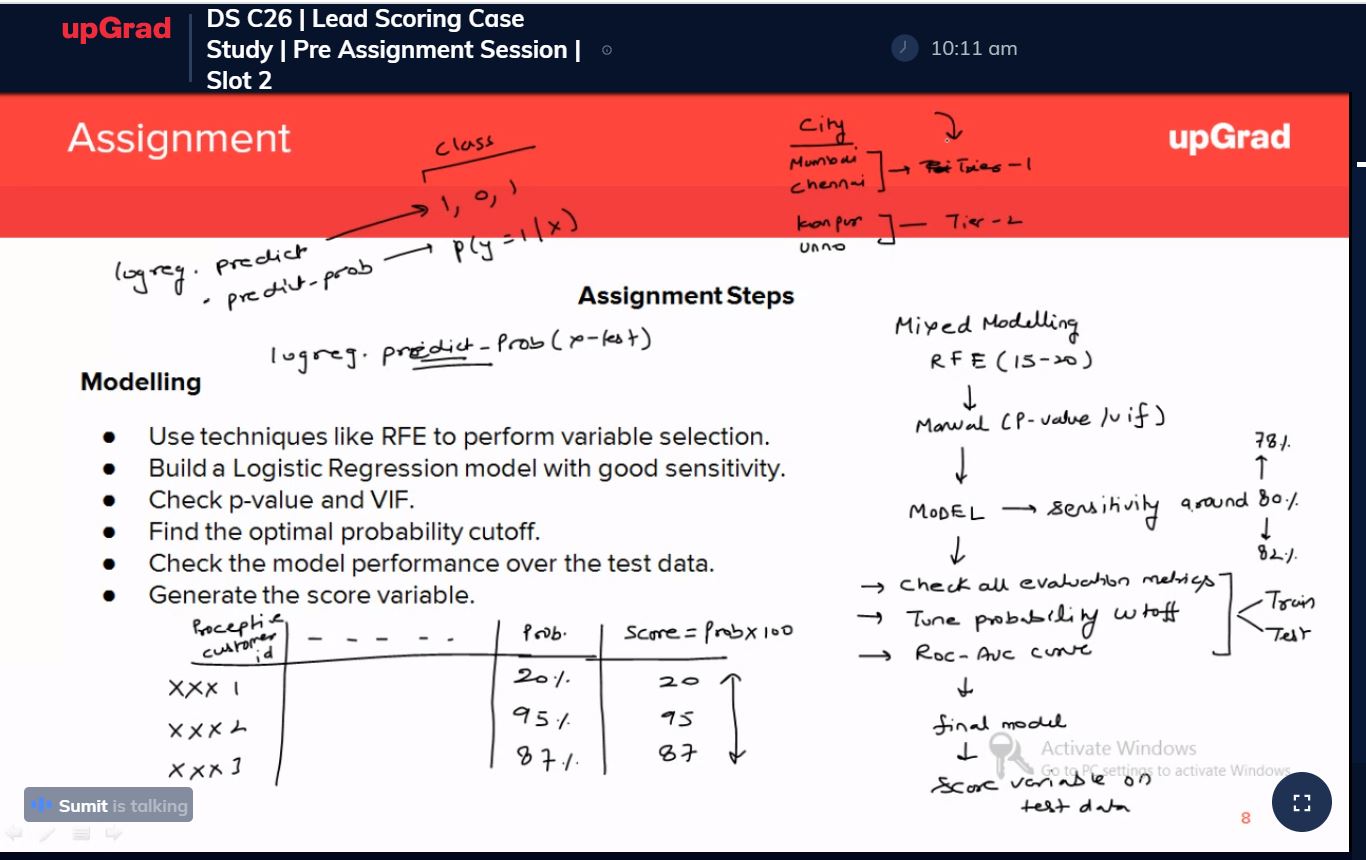 upGrad
DS C26 | Lead Scoring Case
Study | Pre Assignment Session |
Slot 2
10:11 am
Assignment
upGrad
class
1, 0, 1
logreg. predict
. predict-prob
P(y=1|x)
City
Mumbai
Chennai
Tier-1
kanpur
unno
Tier-2
Assignment Steps
logreg. predict-Prob(x-test)
Modelling
● Use techniques like RFE to perform variable selection.
● Build a Logistic Regression model with good sensitivity.
● Check p-value and VIF.
● Find the optimal probability cutoff.
● Check the model performance over the test data.
● Generate the score variable.
customer
id
----- Prob. Score = Prob x 100
XXX 1 20% 20
XXX 2 95% 95
XXX 3 87% 87
Mixed Modelling
RFE (15-20)
↓
Manual (P-value/vif)
↓
MODEL → sensitivity around 80%
↑
78%
↓
82%
↓
→ check all evaluation metrics
→ Tune probability cutoff
→ Roc-Auc curve
Train
Test
↓
final model
↓
Score variable on
test data
Activate Windows
Go to PC settings to activate Windows.
Sumit is talking
8